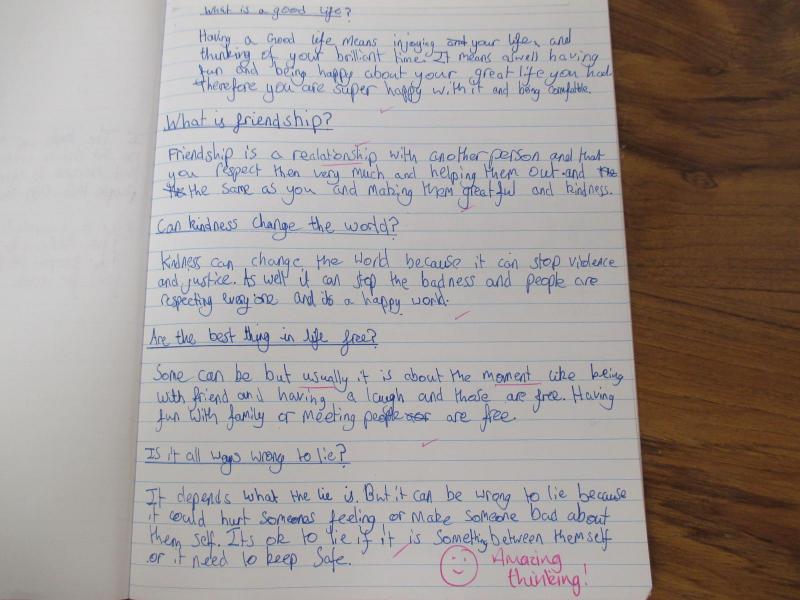 What is a good life?
Having a Good life means injoying your life, and
thinking of your brilliant time. It means aswell having
fun and being happy about your great life you had
therefore you are super happy with it and being comfatble.
What is friendship?
Friendship is a realationship with another person and that
you respect then very much and helping them out and
the same as you and making them greatful and kindness.
Can kindness change the world?
Kindness can change the world because it can stop violence
and justice. As well it can stop the badness and people are
respecting everyone and its a happy world.
Are the best thing in life free?
Some can be but usually it is about the moment like being
with friend and having a laugh and those are free. Having
fun with family or meeting people are free.
Is it all ways wrong to lie?
It depends what the lie is. But it can be wrong to lie because
it could hurt someones feeling or make someone bad about
them self. Its ok to lie if it is something between themself
or it need to keep safe.
Amazing
thinking!